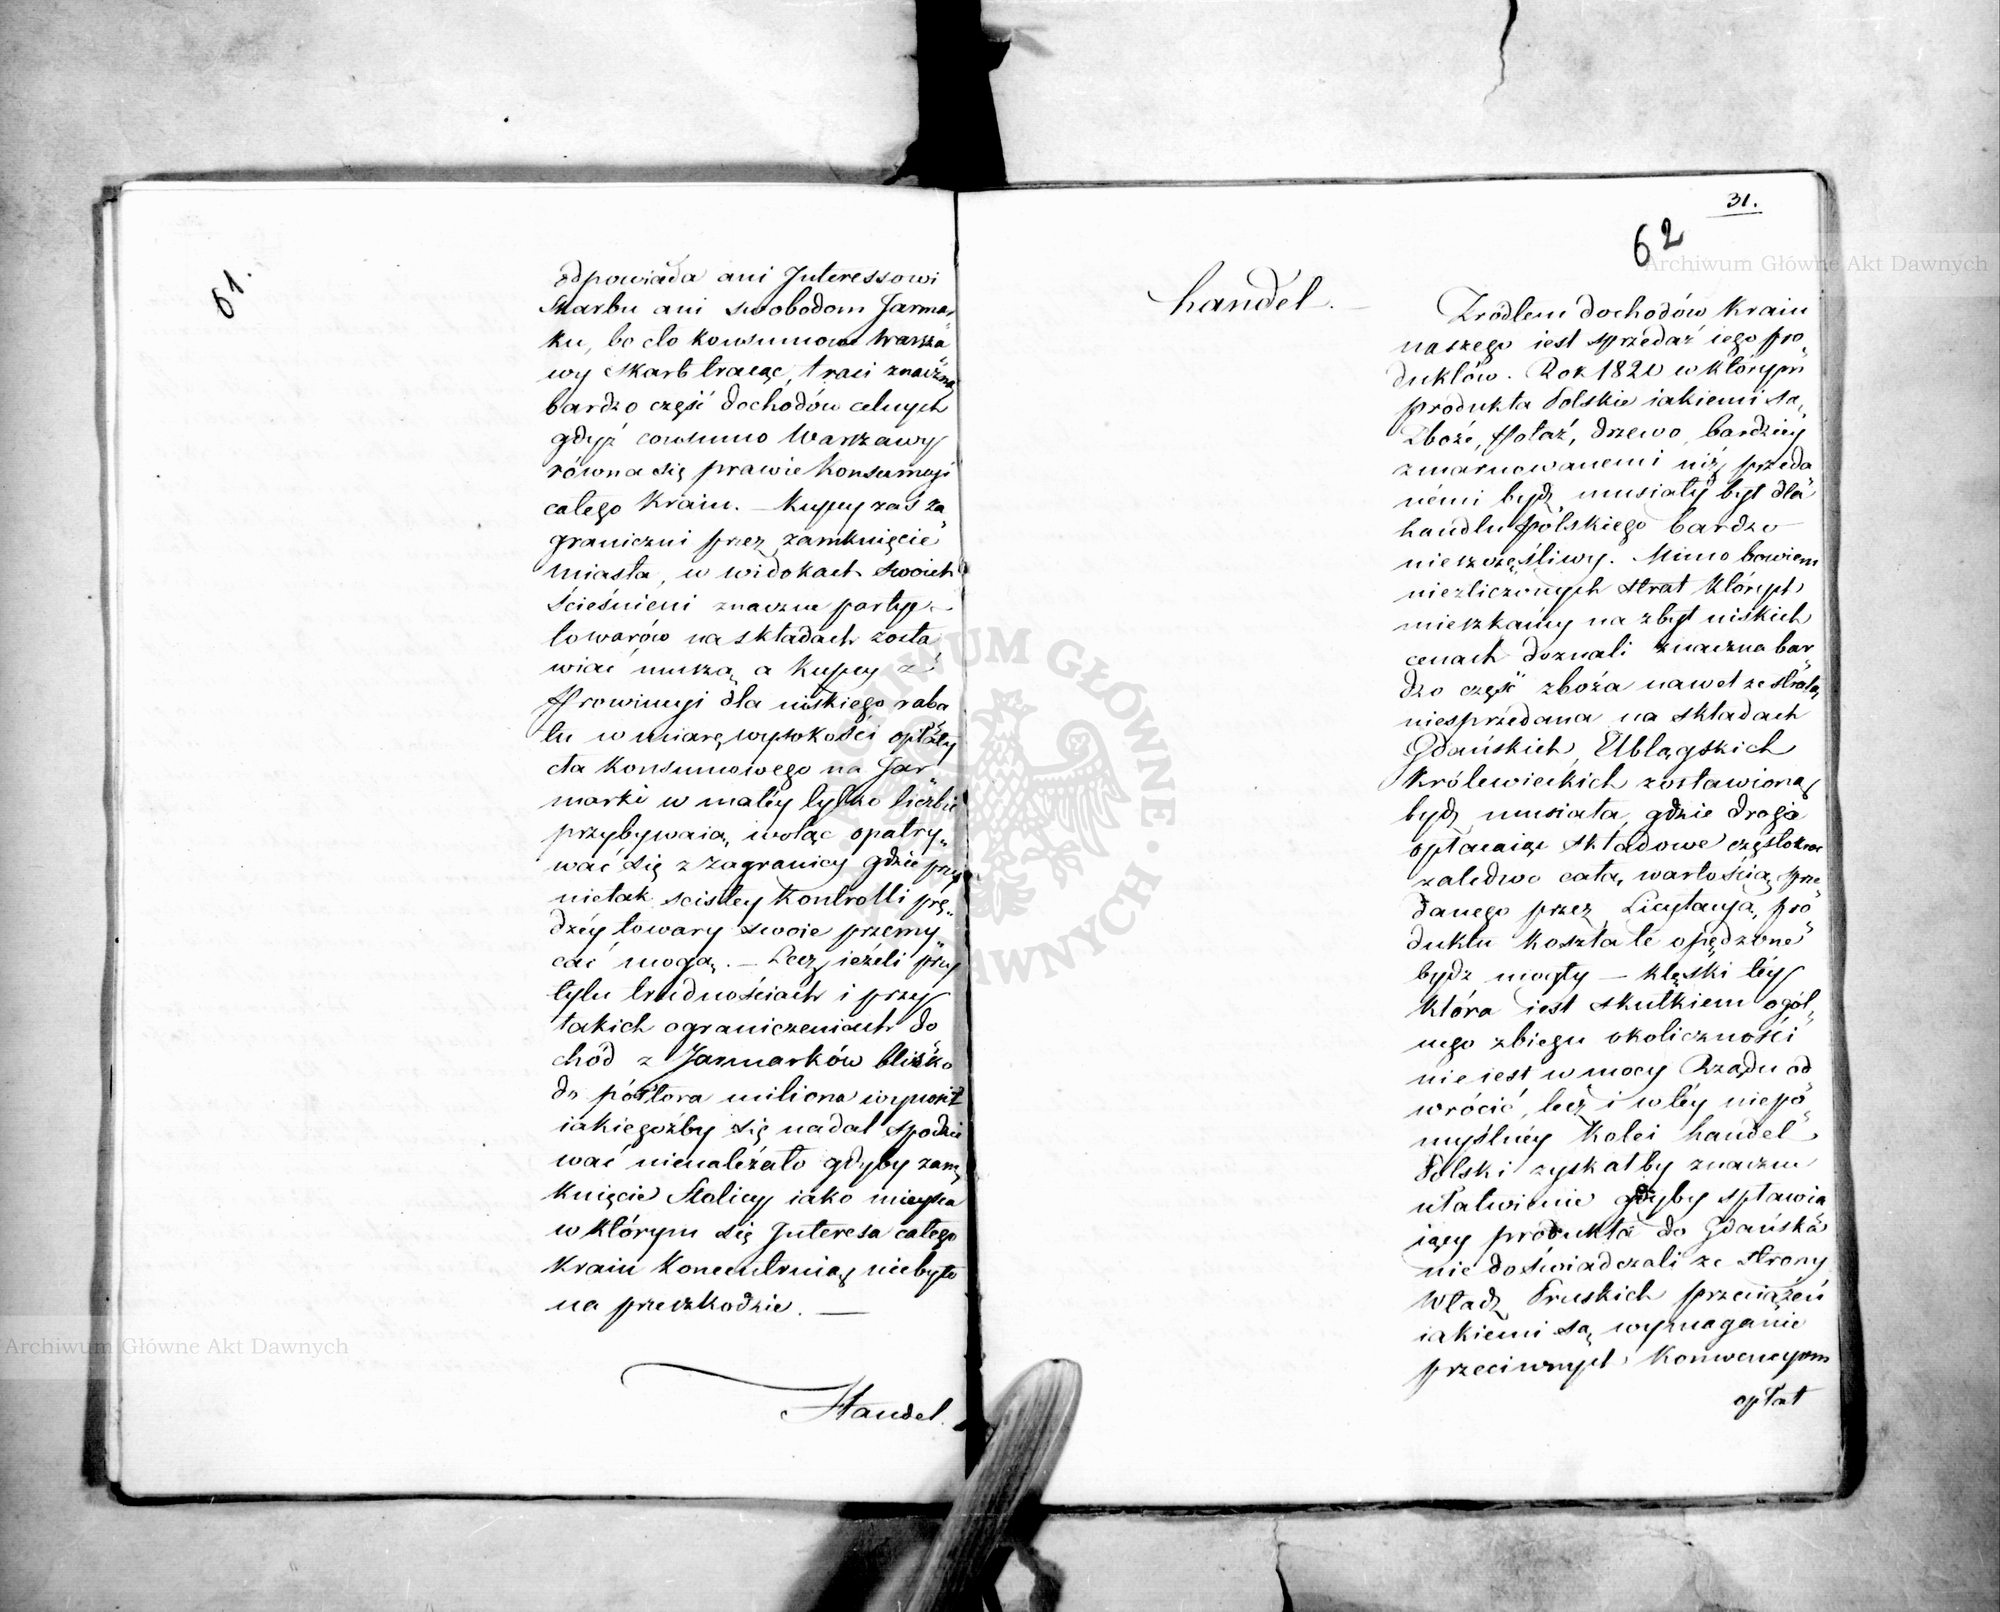 61.
odpowiada ani Interessowi
Skarbu ani swobodom Jarma„
ku, bo cło konsumowe Warsza„
wy Skarb tracąc, traci znaczną
bardzo część dochodów celnych
gdyż consumo Warszawy
równa się prawie konsumcyi
całego Kraiu. — Kupcy zaś za„
graniczni przez zamknięcie
miasta, w widokach swoich
ścieśnieni znaczne partye
towarów na składach zosta„
wiać muszą, a Kupcy z
Prowincyi dla niskiego raba„
tu w miarę wysokości opłaty
cła konsumowego na Jar„
marki w małéy tylko liczbie
przybywaią, woląc opatry„
wać się z zagranicy gdzie przy
nietak scisłey Kontrolli prę„
dzéy towary swoie przemy„
cać mogą. — Lecz ieżeli przy
tylu trudnościach i przy
takich ograniczeniach do„
chód z Jarmarków blisko
do półtora miliona wynosił
iakiegożby się nadal spodzie„
wać nienależało gdyby zam„
knięcie Stolicy iako mieysca
w którym się Interesa całego
Kraiu koncentruią niebyło
na przeszkodzie. —
Handel.
31.
62
handel. —
Zrodłem dochodów Kraiu
naszego iest sprzedaż iego pro„
duktów. Rok 1820 w którym
produkta Polskie iakiemi są,
Zboże, Potaż, drzewo, bardziey
zmarnowanemi niż przeda„
némi bydź musiały był dla
handlu Polskiego bardzo
nieszczęśliwy. Mimo bowiem
niezliczonych strat których
mieszkańcy na zbyt niskich
cenach doznali znaczna bar„
dzo część zboża nawet ze stratą
niesprzedana na składach
Gdańskich, Elblągskich
Królewieckich zostawioną
bydź musiała, gdzie drogo
opłacaiąc składowe częstokroć
zaledwo całą wartością sprze„
danego przez Licytacyą pro„
duktu koszta te opędzone
bydz mogły — klęski téy
która iest skutkiem ogól„
nego zbiegu okoliczności
nie iest w mocy Rządu od„
wrócić, lecz i w téy niepo„
myślnéy kolei handel
Polski zyskałby znaczne
ułatwienie gdyby spławia„
iący produkta do Gdańska
nie doświadczali ze strony
Władz Pruskich przeciążeń
iakiemi są, wymaganie
przeciwnych Konwencyom
opłat
Archiwum Główne Akt Dawnych
Archiwum Główne Akt Dawnych
ARCHIWUM GŁÓWNE AKT DAWNYCH